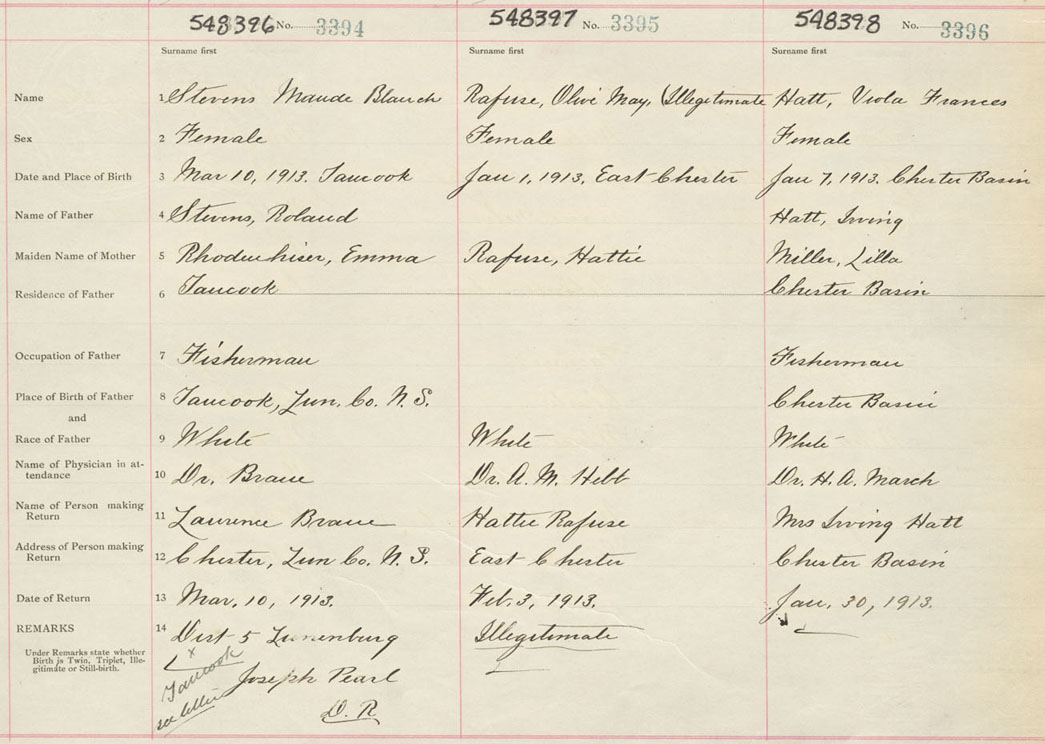 548396 No. 3394 548397 No. 3395 548398 No. 3396
Surname first Surname first Surname first
Name 1 Stevens Maude Blanch Rafuse, Olive May, (Illegitimate Hatt, Viola Frances
Sex 2 Female Female Female
Date and Place of Birth 3 Mar 10, 1913. Tancook Jan 1, 1913. East Chester Jan 7, 1913. Chester Basin
Name of Father 4 Stevens, Roland Hatt, Irving
Maiden Name of Mother 5 Rhodenhiser, Emma Rafuse, Hattie Miller, Lilla
Residence of Father 6 Tancook Chester Basin
Occupation of Father 7 Fisherman Fisherman
Place of Birth of Father 8 Tancook, Lun. Co. N. S. Chester Basin
and
Race of Father 9 White White White
Name of Physician in at-
tendance 10 Dr. Braue Dr. A. M. Hebb Dr. H. A. March
Name of Person making
Return 11 Laurence Braue Hattie Rafuse Mrs Irving Hatt
Address of Person making
Return 12 Chester, Lun Co. N. S. East Chester Chester Basin
Date of Return 13 Mar. 10, 1913. Feb. 3, 1913. Jan. 30, 1913.
REMARKS 14 Dist 5 Lunenburg Illegitimate
Under Remarks state whether
Birth is Twin, Triplet, Ille-
gitimate or Still-birth.
x
Tancook
see letter
Joseph Pearl
D. R